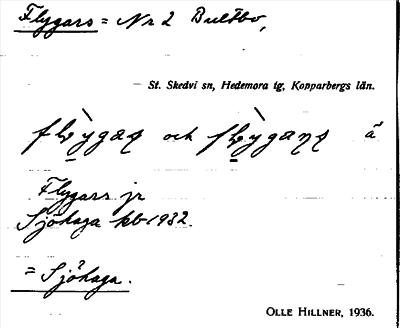 Flygars = Nr 2 Bultbo,
St. Skedvi sn, Hedemora tg, Kopparbergs län.
och å
Flygars jr
Sjöhaga kb 1932.
= Sjöhaga.
OLLE HILLNER, 1936.